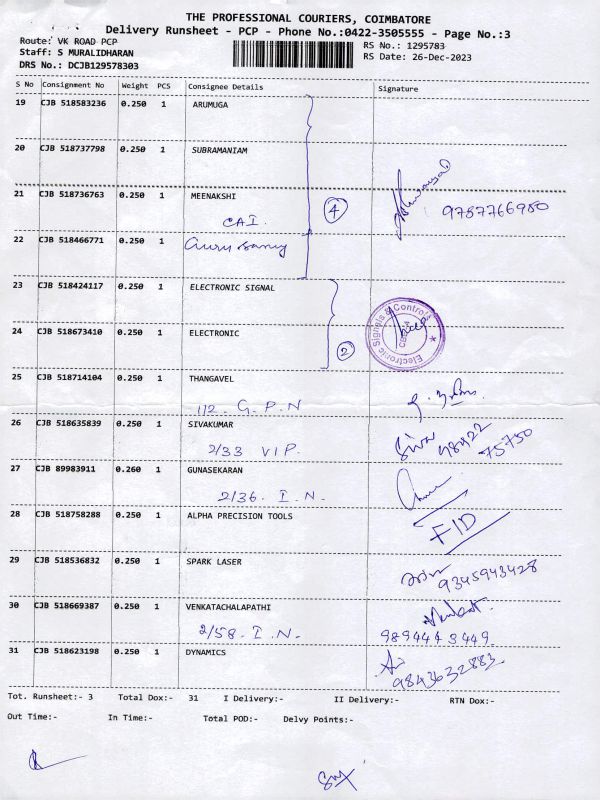 THE PROFESSIONAL COURIERS, COIMBATORE
Delivery Runsheet - PCP - Phone No.:0422-3505555 - Page No.:3
Route: VK ROAD PCP
RS No.: 1295783
Staff: S MURALIDHARAN
RS Date: 26-Dec-2023
DRS No.: DCJB129578303
S No Consignment No Weight PCS Consignee Details Signature
19 CJB 518583236 0.250 1 ARUMUGA
20 CJB 518737798 0.250 1 SUBRAMANIAM
21 CJB 518736763 0.250 1 MEENAKSHI
CAI. 4 9787766980
22 CJB 518466771 0.250 1
23 CJB 518424117 0.250 1 ELECTRONIC SIGNAL
Electronic Signals & Controls
24 CJB 518673410 0.250 1 ELECTRONIC
2
25 CJB 518714104 0.250 1 THANGAVEL
112. G.P.N
26 CJB 518635839 0.250 1 SIVAKUMAR
2/33 VIP. Siva 98422 75750
27 CJB 89983911 0.260 1 GUNASEKARAN
2/36. I.N.
28 CJB 518758288 0.250 1 ALPHA PRECISION TOOLS
FID
29 CJB 518536832 0.250 1 SPARK LASER
9345943428
30 CJB 518669387 0.250 1 VENKATACHALAPATHI
Venkat.
2/58. I.N. 9894443449
31 CJB 518623198 0.250 1 DYNAMICS
9843632883
Tot. Runsheet:- 3 Total Dox:- 31 I Delivery:- II Delivery:- RTN Dox:-
Out Time:- In Time:- Total POD:- Delvy Points:-